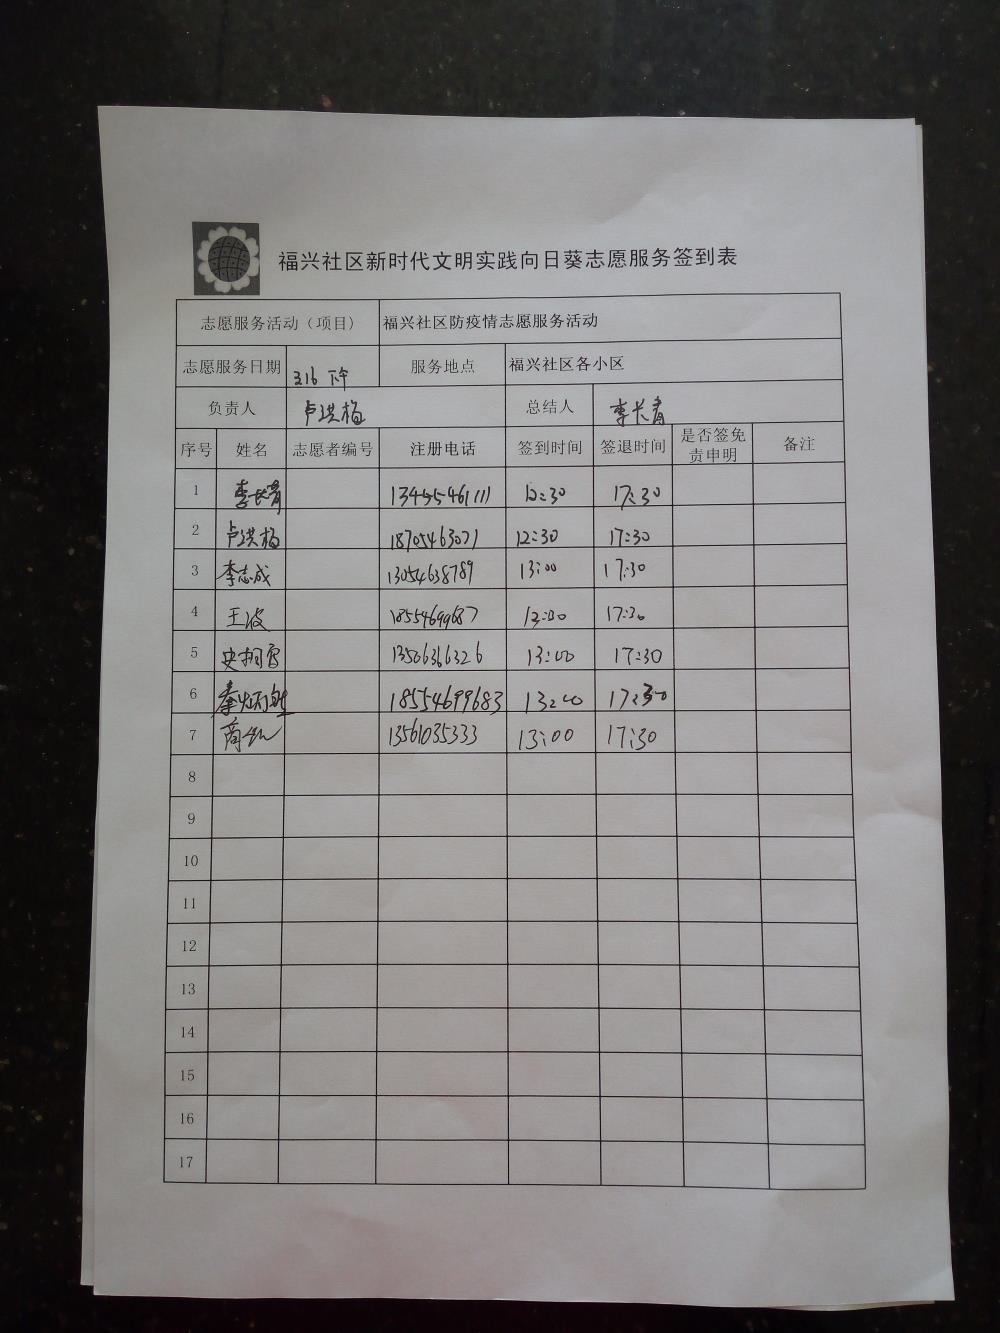 福兴社区新时代文明实践向日葵志愿服务签到表
志愿服务活动（项目） 福兴社区防疫情志愿服务活动
志愿服务日期 3.16 下午 服务地点 福兴社区各小区
负责人 卢洪梅 总结人 李长青
序号 姓名 志愿者编号 注册电话 签到时间 签退时间 是否签免责申明 备注
1 李长青 13455461111 12:30 17:30
2 卢洪梅 18705463071 12:30 17:30
3 李志成 13054638789 13:00 17:30
4 王波 18554699687 13:00 17:30
5 13506366326 13:00 17:30
6 18554699683 13:00 17:30
7 13561035333 13:00 17:30
8
9
10
11
12
13
14
15
16
17